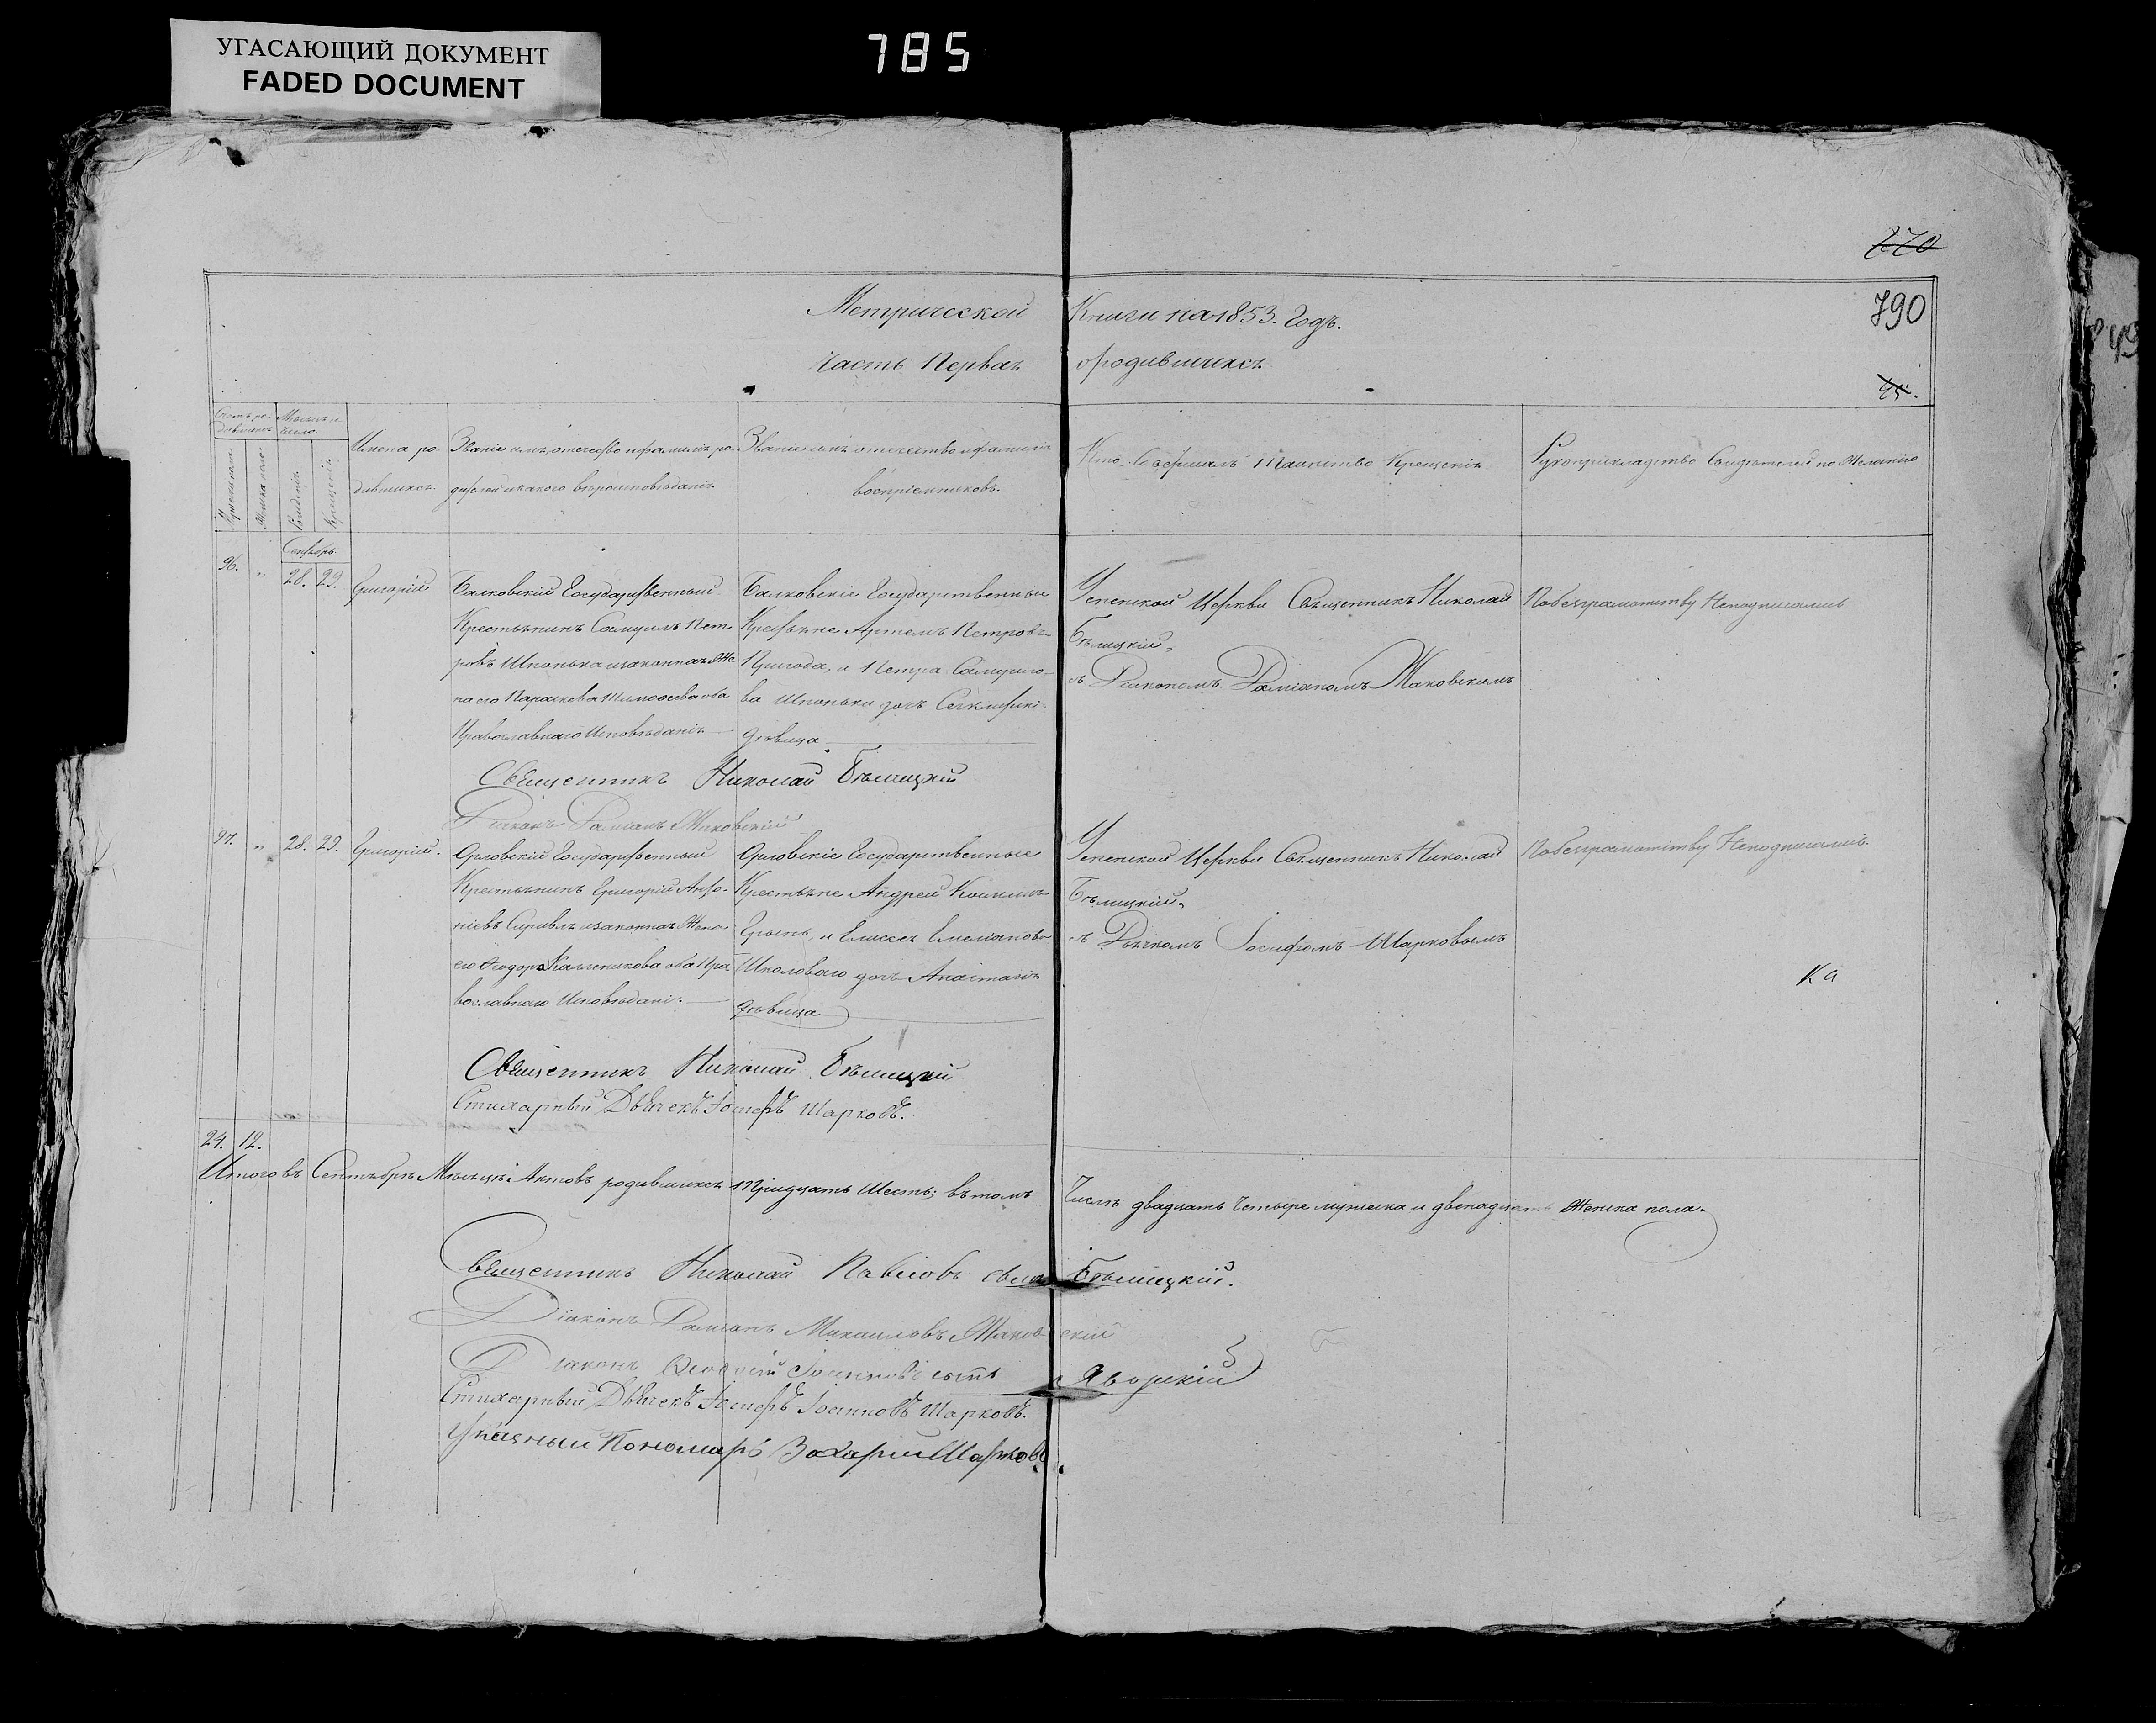 УГАСАЮЩИЙ ДОКУМЕНТ
FADED DOCUMENT
785
270
790
Метрической Книги на 1853. Годъ.
Часть Первая о родившихся
95.
Счетъ ро- Мѣсяцъ и
дившихся число.
Мужеска пола
Женска пола
Рожденія
Крещенія
Имена ро-
дившихся.
Званіе имя, отечество и фамилія ро-
дителей и какого вѣроисповѣданія.
Званіе имя отечество и фамилія
воспріемниковъ.
Кто Совершалъ Таинство Крещенія
Рукоприкладство Свидѣтелей по Желанію
Сентябрь.
96. " 28. 29. Григорій
Балковскій Государственный
Крестьянинъ Самуилъ Пет-
ровъ Шпонька и законная Же
на его Параскева Тимоѳеева оба
Православнаго Исповѣданія
Балковскіе Государственные
Крестьяне Артемъ Петровъ
Пригода, и Петра Самуило-
ва Шпоньки дочь
дѣвица
Успенской Церкви Священникъ Николай
Бѣлицкій,
съ Діакономъ Даміаномъ Жаковскимъ
По безграмотству Неподписались
Священникъ Николай Бѣлицкій
Діаконъ Даміанъ Жаковскій
97. " 28. 29. Григорій.
Орловскій Государственный
Крестьянинъ Григорій Анто-
ніевъ и законная Жена
его Ѳеодора Калиникова оба Пра
вославнаго Исповѣданія.
Орловскіе Государственные
Крестьяне Андрей
и Елисея Емеліанова
Шполоваго дочь Анастасія
дѣвица
Успенской Церкви Священникъ Николай
Бѣлицкій,
съ Дьячкомъ Іосифомъ Шарковымъ
По безграмотству Неподписались.
Ка
Священникъ Николай Бѣлицкій
Стихарный Дьячекъ Іосифъ Шарковъ.
24. 12.
Итого въ Сентябрѣ Мѣсяцѣ Актовъ родившихся тридцать Шесть; въ томъ Числѣ двадцать Четыре мужеска и двенадцать Женска пола.
Священникъ Николай Павловъ сынъ Бѣлицкій.
Діаконъ Даміанъ Михаиловъ Жаковскій
Діаконъ Іоанновъ сынъ Яворскій
Стихарный Дьячекъ Іосифъ Іоанновъ Шарковъ.
Указный Пономарь Захарій Шарковъ.